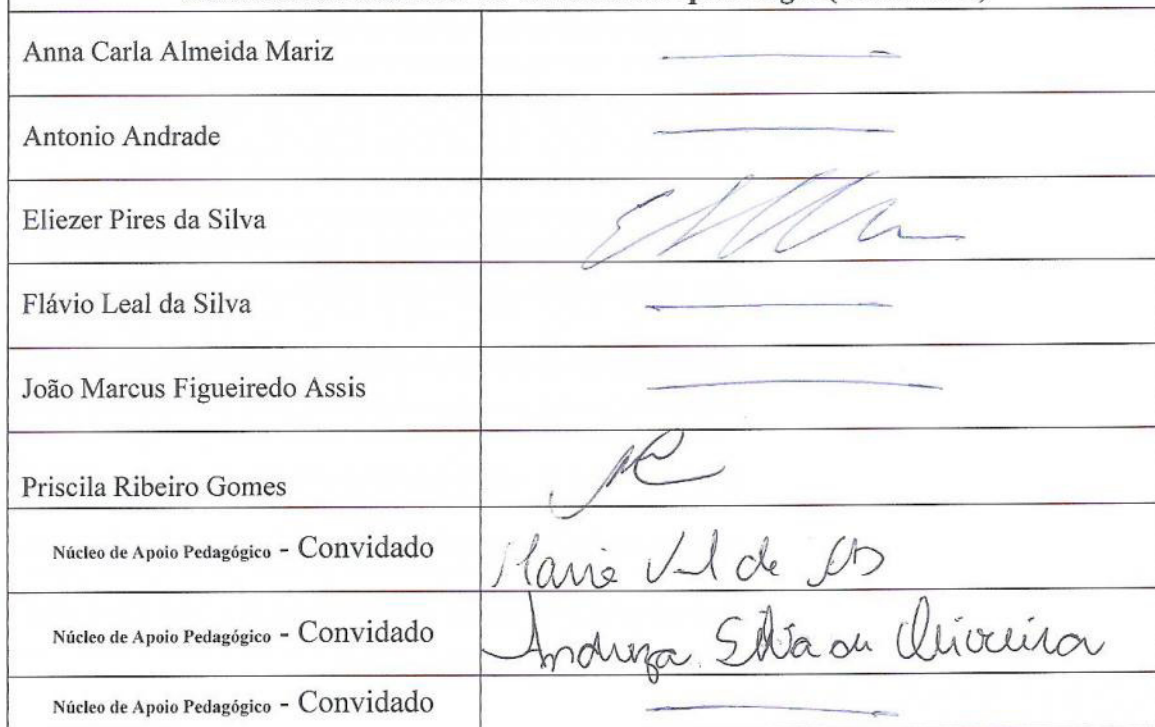 Anna Carla Almeida Mariz
Antonio Andrade
Eliezer Pires da Silva
Flávio Leal da Silva
João Marcus Figueiredo Assis
Priscila Ribeiro Gomes
Núcleo de Apoio Pedagógico - Convidado
Núcleo de Apoio Pedagógico - Convidado
Andreza Oliveira
Núcleo de Apoio Pedagógico - Convidado